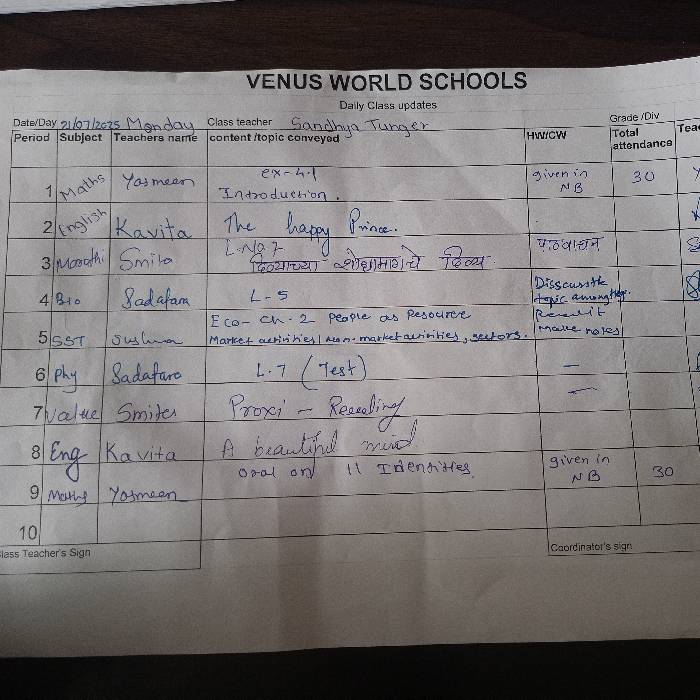 VENUS WORLD SCHOOLS
Daily Class updates
Date/Day 21/07/2025 Monday Class teacher Sandhya Tunger Grade /Div
Period Subject Teachers name content /topic conveyed HW/CW Total attendance Tea
1 Maths Yasmeen ex-4.1 Introduction. given in NB 30
2 English Kavita The happy Prince.
3 Marathi Smita L.No 7 दिव्याच्या शोधामागचे दिव्य
4 Bio Sadafara L-5 topic
5 SST Sushma Eco- ch-2 People as Resource Market activities/ non-market activities, sectors. Read it Make notes
6 Phy Sadafara L.7 (Test) —
7 Value Smita Proxi - Reading —
8 Eng Kavita A beautiful mind.
9 Maths Yasmeen oral on 11 Identities. given in NB 30
10
lass Teacher's Sign Coordinator's sign